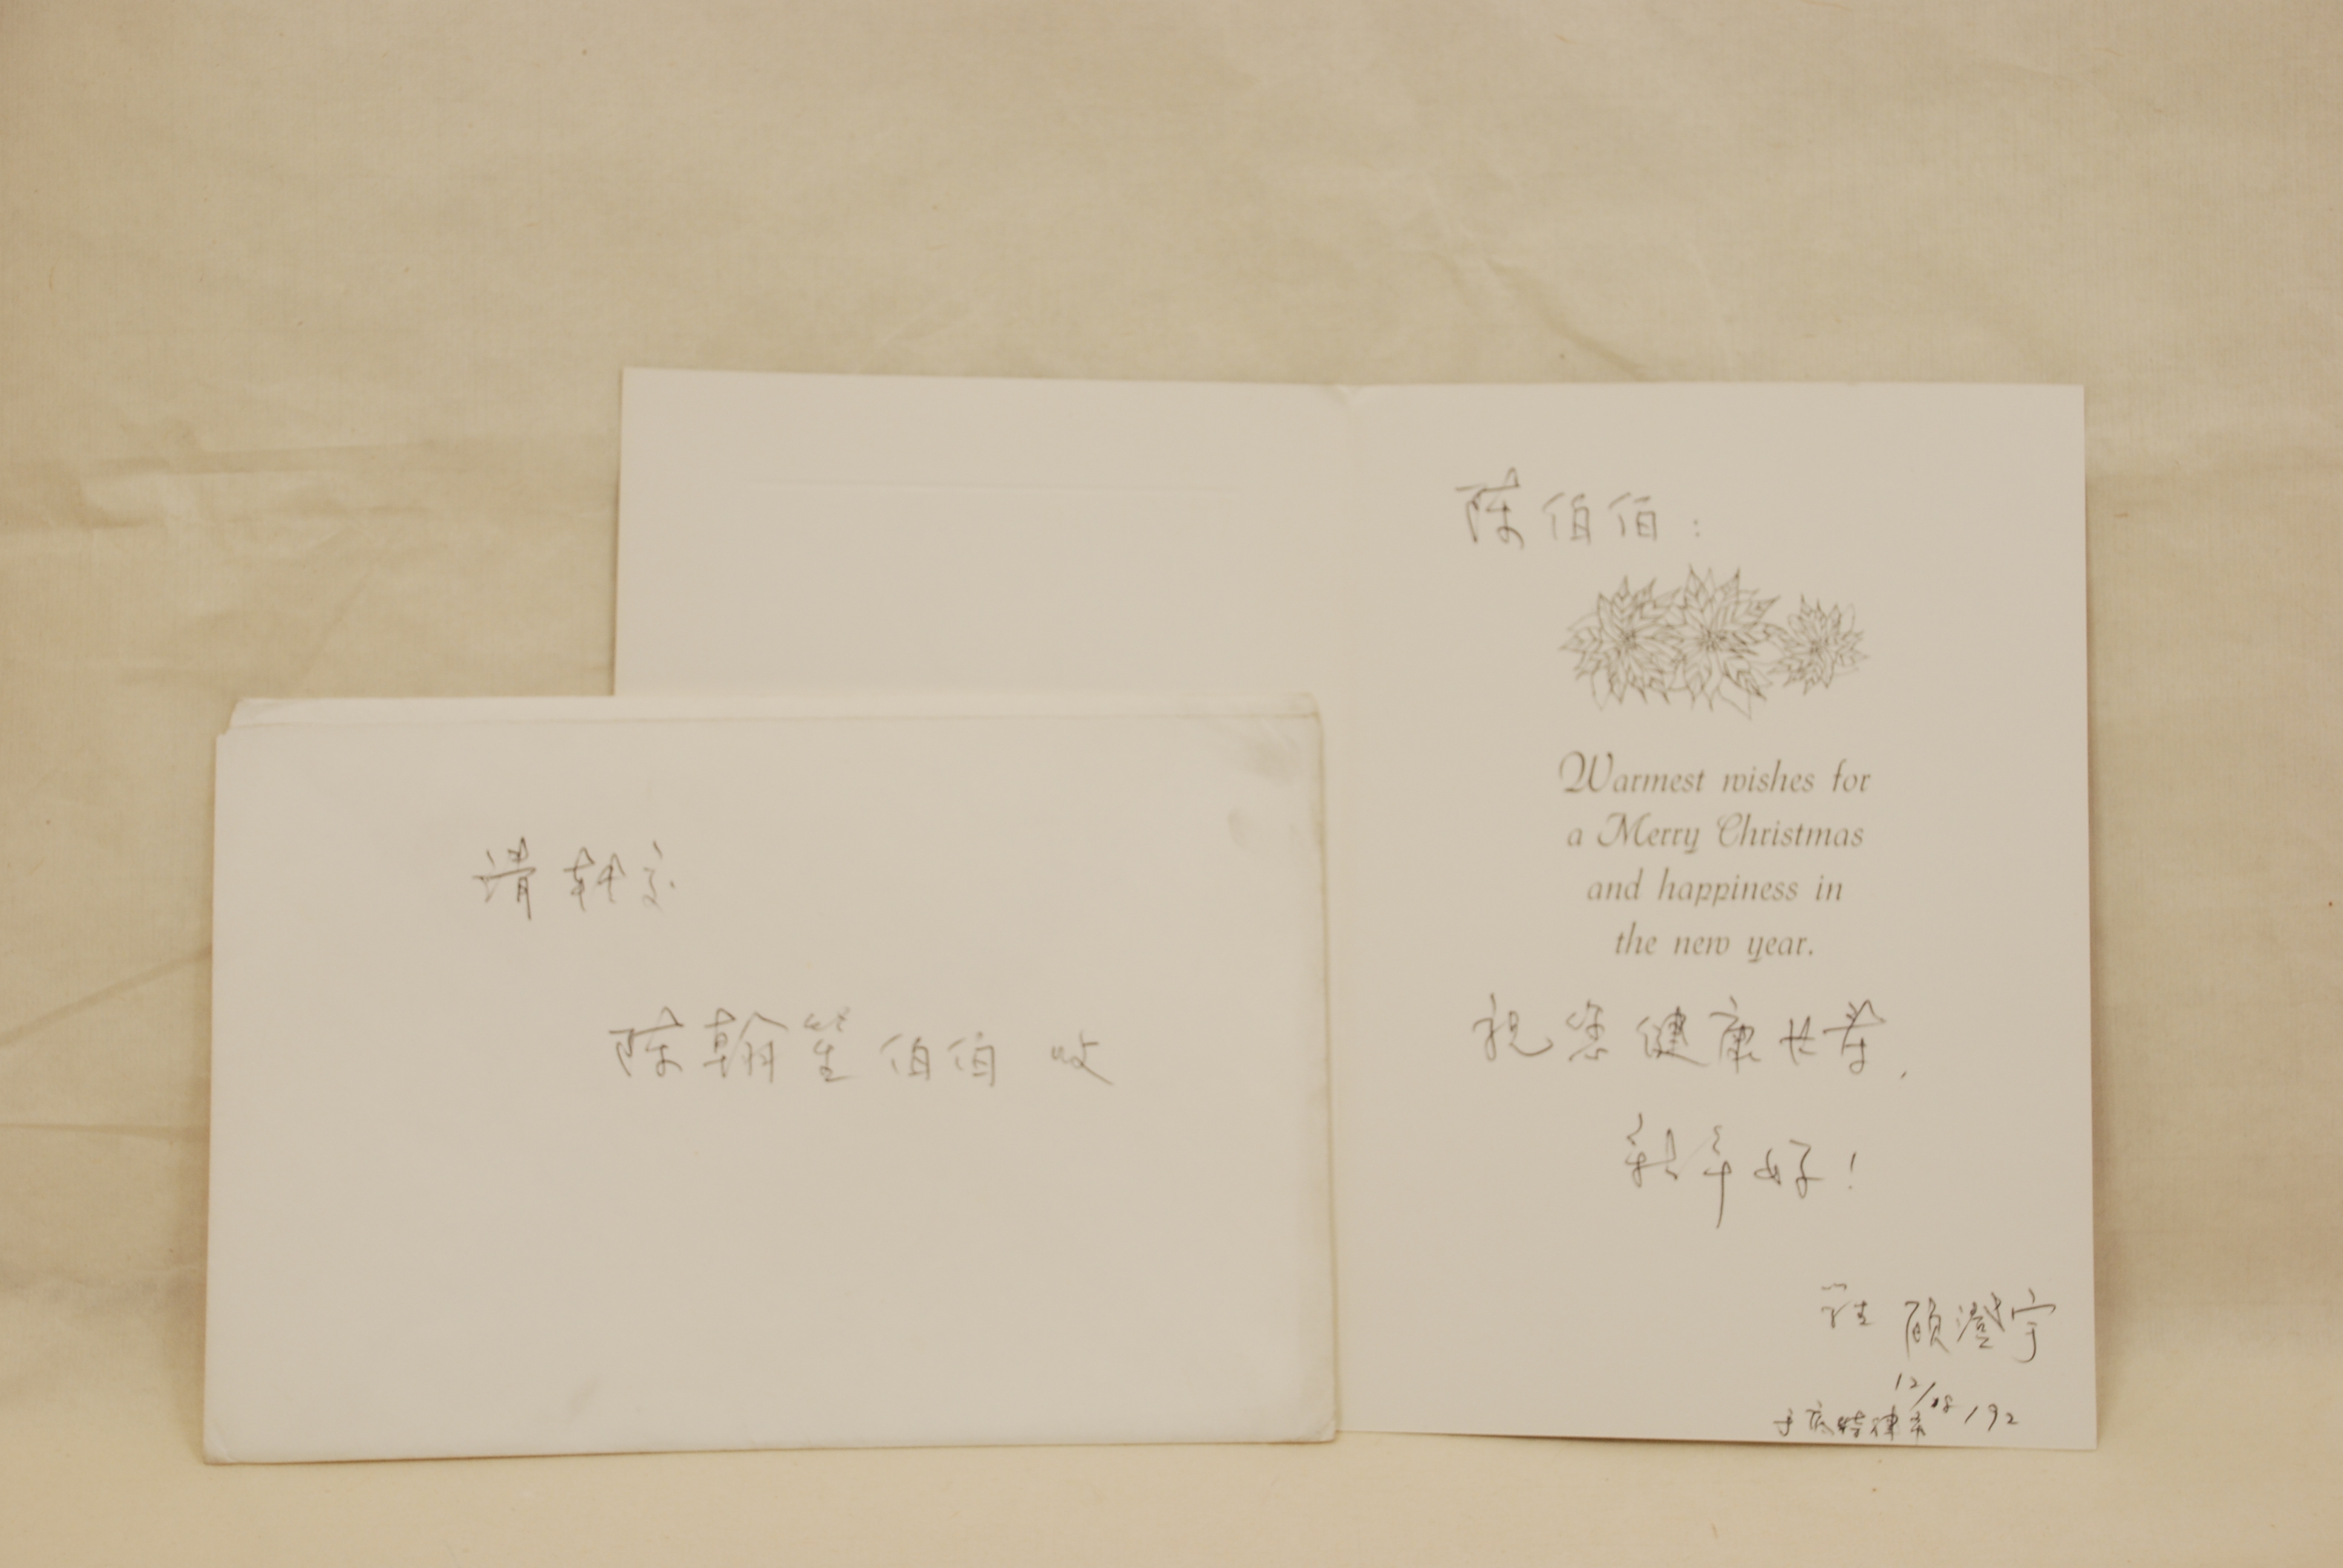 请转交
陈翰笙伯伯 收
陈伯伯：
Warmest wishes for
a Merry Christmas
and happiness in
the new year.
祝您健康长寿，
新年好！
顾澄宇
12/08/92
于底特律市